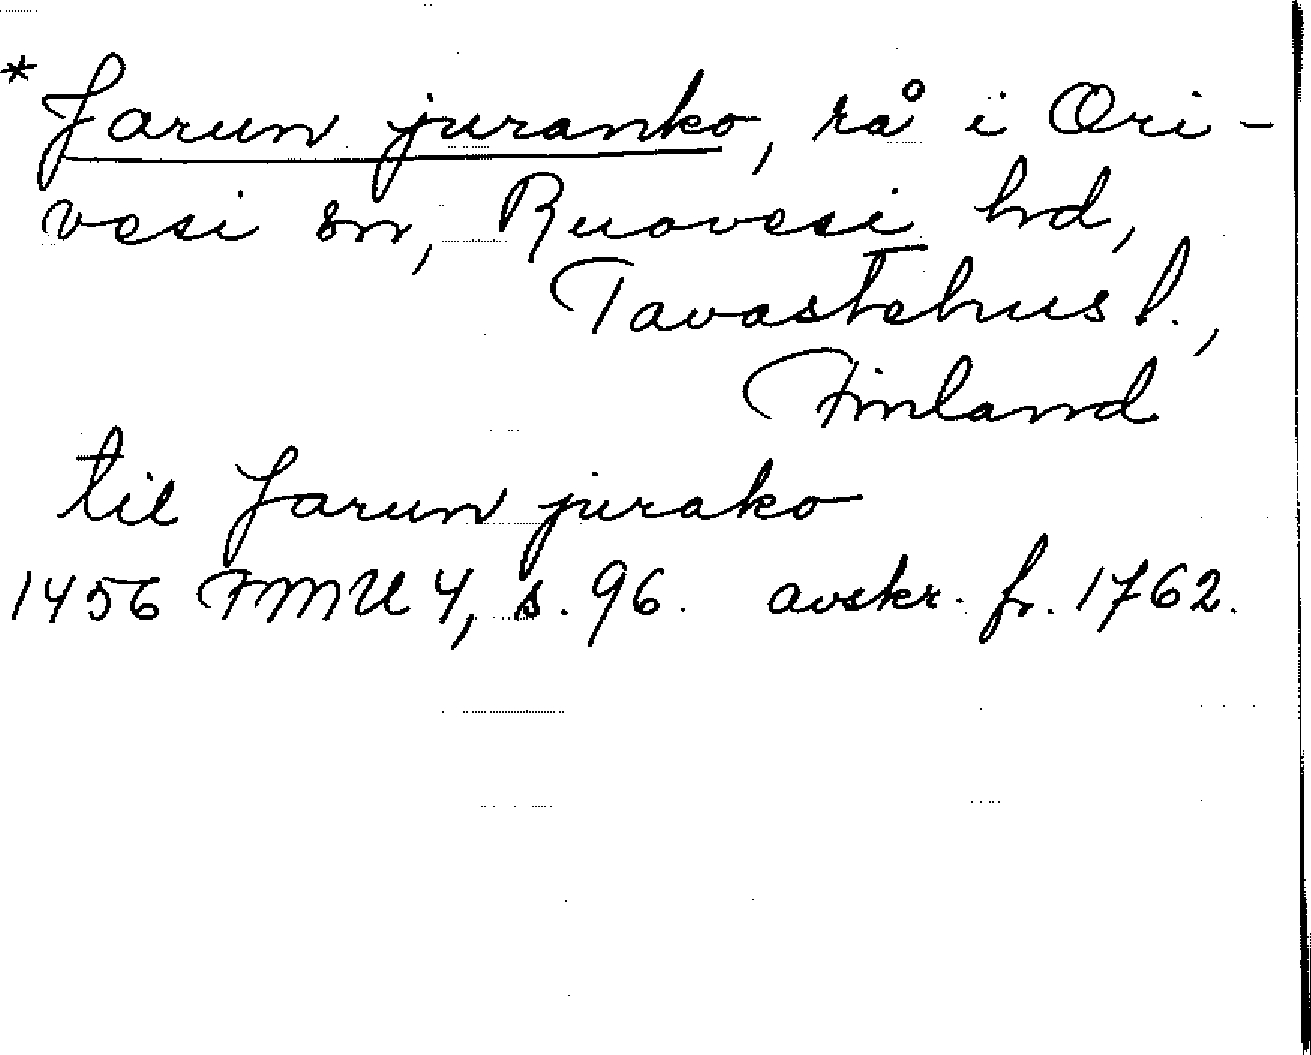 * Jarun juranko, rå i Ori-
vesi sn, Ruovesi hd,
Tavastehus l.,
Finland
til Jarun jurako
1456 FMU 4, s. 96. avskr. fr. 1762.